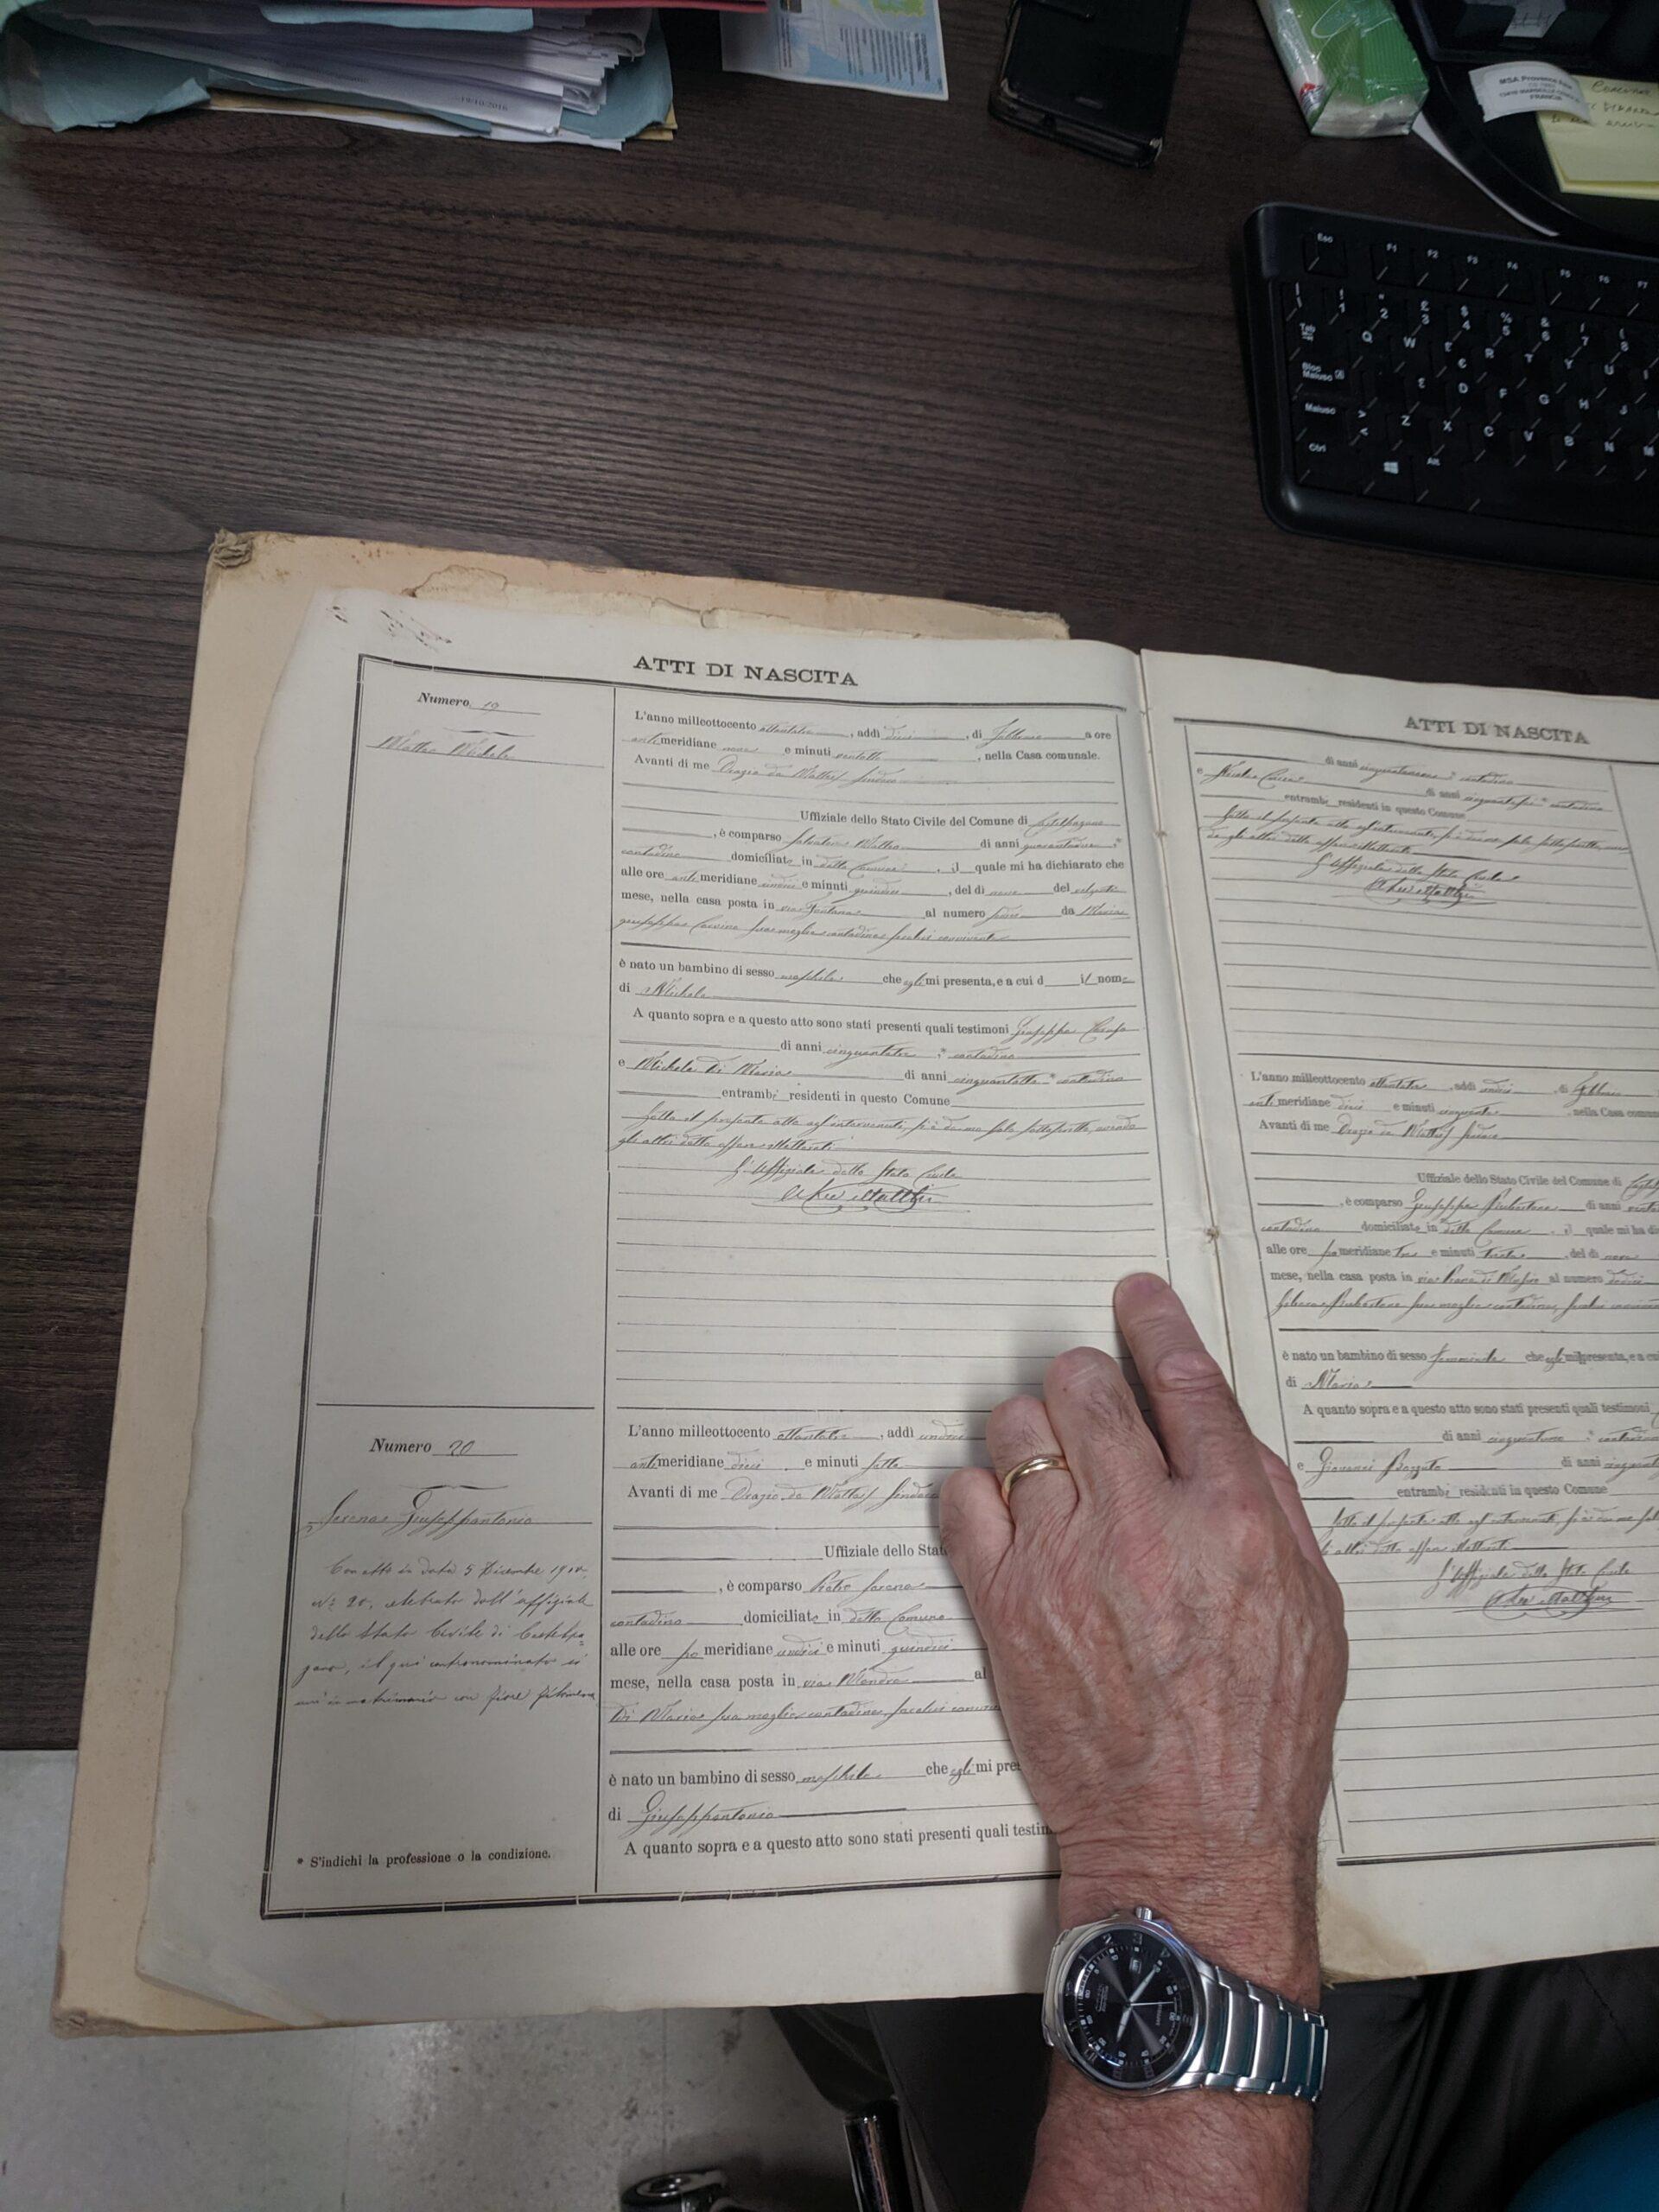 19/10/2016
MSA Provence Azur
FRANCE
Esc F1 F2 F3 F4 F5 F6 F7
Q W E R T Y U
Bloc Maiusc D F G H J
Maiusc Z X C V B N M
Ctrl Alt
ATTI DI NASCITA
Numero 19
Matteo Michele
L'anno milleottocento ottantatre, addì dieci, di Febbraio a ore
antimeridiane nove e minuti ventotto, nella Casa comunale.
Avanti di me Orazio de Matteis Sindaco
Uffiziale dello Stato Civile del Comune di Castelpagano
, è comparso Salvatore Matteo di anni quarantadue *
contadino domiciliato in detto Comune, il quale mi ha dichiarato che
alle ore antimeridiane undici e minuti quindici, del dì nove del volgente
mese, nella casa posta in via Fontana al numero da Maria
giuseppa sua moglie contadina seco lui convivente
è nato un bambino di sesso maschile che egli mi presenta, e a cui d il nome
di Michele
A quanto sopra e a questo atto sono stati presenti quali testimoni Giuseppe
di anni cinquantatre * contadino
e Michele Di Maria di anni cinquantotto * contadino
entrambi residenti in questo Comune
Letto il presente atto agl'intervenuti, si è da me solo sottoscritto, avendo
gli altri detto essere illetterati
L'Uffiziale dello Stato Civile
Numero 20
Serena Giuseppantonio
Con atto in data 5 Dicembre
N: 20, celebrato dall'uffiziale
dello Stato Civile di Castelpa=
gano, il qui contronominato si
unì in matrimonio con Fiore Filomena
* S'indichi la professione o la condizione.
L'anno milleottocento ottantatre, addì undici
antimeridiane dieci e minuti sette
Avanti di me Orazio de Matteis Sindaco
Uffiziale dello Stat
, è comparso Pietro Serena
contadino domiciliato in detto Comune
alle ore pomeridiane undici e minuti quindici
mese, nella casa posta in via Mandra al
Di Maria sua moglie contadina seco lui
è nato un bambino di sesso maschile che egli mi pres
di Giuseppantonio
A quanto sopra e a questo atto sono stati presenti quali testim
ATTI DI NASCITA
di anni cinquantanove * contadino
e Nicola di anni cinquantasei * contadino
entrambi residenti in questo Comune
Letto il presente atto agl'intervenuti, si è da me solo sottoscritto, aven
do gli altri detto essere illetterati
L'Uffiziale dello Stato Civile
L'anno milleottocento ottantatre, addì undici, di Febbraio
antimeridiane dieci e minuti cinquanta, nella Casa comun
Avanti di me Orazio de Matteis Sindaco
Uffiziale dello Stato Civile del Comune di
, è comparso Giuseppe di anni
contadino domiciliato in detto Comune, il quale mi ha di
alle ore pomeridiane tre e minuti trenta, del dì nove
mese, nella casa posta in via al numero dodici
sua moglie contadina, seco lui
è nato un bambino di sesso femminile che egli mi presenta, e a cui
di Maria
A quanto sopra e a questo atto sono stati presenti quali testimoni
di anni cinquantuno * contadino
e Giovanni Bozzuto di anni
entrambi residenti in questo Comune
Letto il presente atto agl'intervenuti, si è da me sol
gli altri detto essere illetterati
L'Uffiziale dello Stato Civile